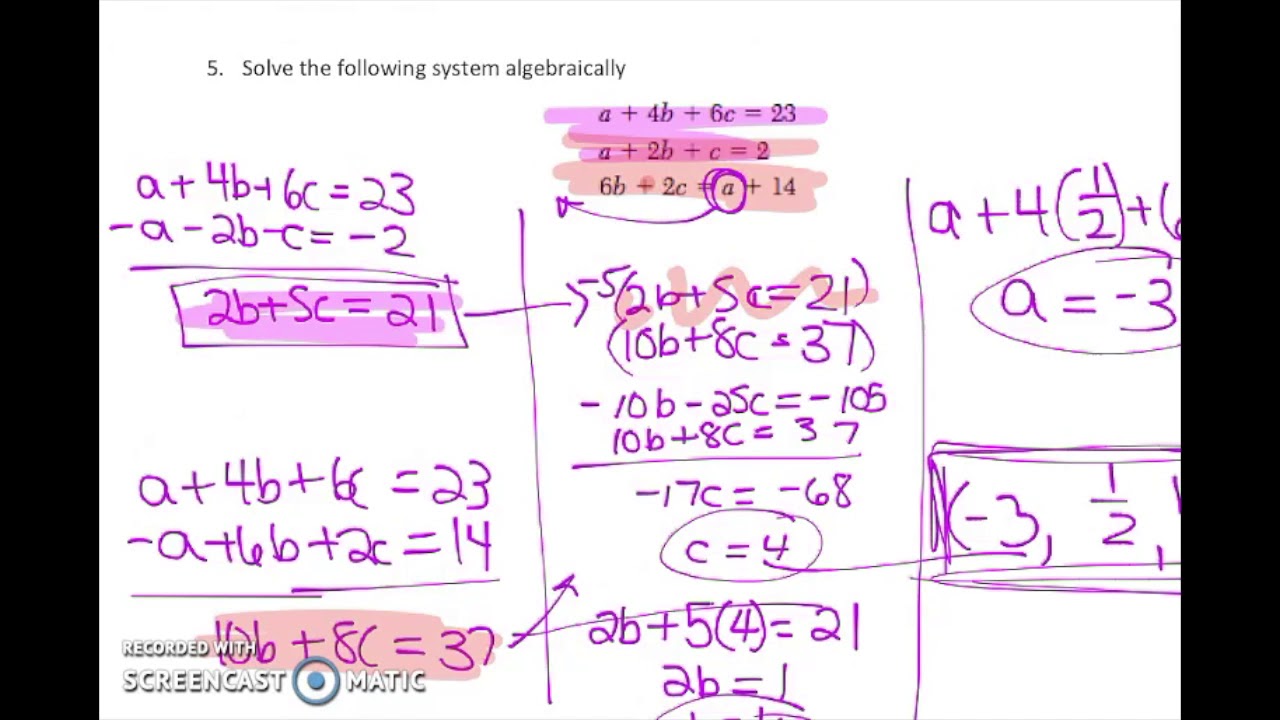 5. Solve the following system algebraically
a + 4b + 6c = 23
a + 2b + c = 2
6b + 2c = a + 14
a+4b+6c=23
-a-2b-c=-2
2b+5c=21
a+4b+6c=23
-a+6b+2c=14
10b+8c=37
-5(2b+5c=21)
(10b+8c=37)
-10b-25c=-105
10b+8c=37
-17c=-68
c=4
2b+5(4)=21
2b=1
a+4(1/2)+(
a=-3
(-3, 1/2,
RECORDED WITH
SCREENCAST MATIC